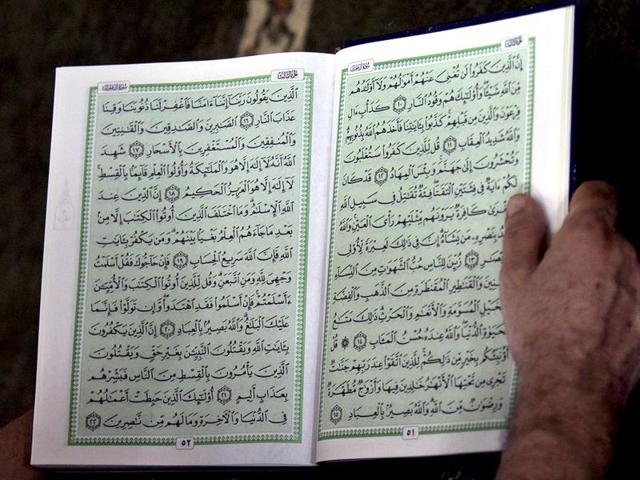 إِنَّ الَّذِينَ كَفَرُوا لَن تُغْنِيَ عَنْهُمْ أَمْوَالُهُمْ وَلَا أَوْلَادُهُم
مِّنَ اللَّهِ شَيْئًا وَأُولَٰئِكَ هُمْ وَقُودُ النَّارِ ١٠ كَدَأْبِ آلِ
فِرْعَوْنَ وَالَّذِينَ مِن قَبْلِهِمْ كَذَّبُوا بِآيَاتِنَا فَأَخَذَهُمُ اللَّهُ بِذُنُوبِهِمْ
وَاللَّهُ شَدِيدُ الْعِقَابِ ١١ قُل لِّلَّذِينَ كَفَرُوا سَتُغْلَبُونَ
وَتُحْشَرُونَ إِلَىٰ جَهَنَّمَ وَبِئْسَ الْمِهَادُ ١٢ قَدْ كَانَ
لَكُمْ آيَةٌ فِي فِئَتَيْنِ الْتَقَتَا فِئَةٌ تُقَاتِلُ فِي سَبِيلِ اللَّهِ
كَافِرَةٌ يَرَوْنَهُم مِّثْلَيْهِمْ رَأْيَ الْعَيْنِ وَاللَّهُ
بِنَصْرِهِ مَن يَشَاءُ إِنَّ فِي ذَٰلِكَ لَعِبْرَةً لِّأُولِي
١٣ زُيِّنَ لِلنَّاسِ حُبُّ الشَّهَوَاتِ مِنَ النِّسَاءِ
وَالْقَنَاطِيرِ الْمُقَنطَرَةِ مِنَ الذَّهَبِ وَالْفِضَّةِ
الْمُسَوَّمَةِ وَالْأَنْعَامِ وَالْحَرْثِ ذَٰلِكَ مَتَاعُ
الدُّنْيَا وَاللَّهُ عِندَهُ حُسْنُ الْمَآبِ ١٤ ۞ قُلْ
أَؤُنَبِّئُكُم بِخَيْرٍ مِّن ذَٰلِكُمْ لِلَّذِينَ اتَّقَوْا عِندَ رَبِّهِمْ جَنَّاتٌ
تَجْرِي مِن تَحْتِهَا الْأَنْهَارُ خَالِدِينَ فِيهَا وَأَزْوَاجٌ مُّطَهَّرَةٌ
وَرِضْوَانٌ مِّنَ اللَّهِ وَاللَّهُ بَصِيرٌ بِالْعِبَادِ ١٥
٥١
الَّذِينَ يَقُولُونَ رَبَّنَا إِنَّنَا آمَنَّا فَاغْفِرْ لَنَا ذُنُوبَنَا وَقِنَا
عَذَابَ النَّارِ ١٦ الصَّابِرِينَ وَالصَّادِقِينَ وَالْقَانِتِينَ
وَالْمُنفِقِينَ وَالْمُسْتَغْفِرِينَ بِالْأَسْحَارِ ١٧ شَهِدَ
اللَّهُ أَنَّهُ لَا إِلَٰهَ إِلَّا هُوَ وَالْمَلَائِكَةُ وَأُولُوا الْعِلْمِ قَائِمًا بِالْقِسْطِ
لَا إِلَٰهَ إِلَّا هُوَ الْعَزِيزُ الْحَكِيمُ ١٨ إِنَّ الدِّينَ عِندَ
اللَّهِ الْإِسْلَامُ وَمَا اخْتَلَفَ الَّذِينَ أُوتُوا الْكِتَابَ إِلَّا مِن
بَعْدِ مَا جَاءَهُمُ الْعِلْمُ بَغْيًا بَيْنَهُمْ وَمَن يَكْفُرْ بِآيَاتِ
اللَّهِ فَإِنَّ اللَّهَ سَرِيعُ الْحِسَابِ ١٩ فَإِنْ حَاجُّوكَ فَقُلْ أَسْلَمْتُ
وَجْهِيَ لِلَّهِ وَمَنِ اتَّبَعَنِ وَقُل لِّلَّذِينَ أُوتُوا الْكِتَابَ وَالْأُمِّيِّينَ
أَأَسْلَمْتُمْ فَإِنْ أَسْلَمُوا فَقَدِ اهْتَدَوا وَّإِن تَوَلَّوْا فَإِنَّمَا
عَلَيْكَ الْبَلَاغُ وَاللَّهُ بَصِيرٌ بِالْعِبَادِ ٢٠ إِنَّ الَّذِينَ يَكْفُرُونَ
بِآيَاتِ اللَّهِ وَيَقْتُلُونَ النَّبِيِّينَ بِغَيْرِ حَقٍّ وَيَقْتُلُونَ
الَّذِينَ يَأْمُرُونَ بِالْقِسْطِ مِنَ النَّاسِ فَبَشِّرْهُم
بِعَذَابٍ أَلِيمٍ ٢١ أُولَٰئِكَ الَّذِينَ حَبِطَتْ أَعْمَالُهُمْ
فِي الدُّنْيَا وَالْآخِرَةِ وَمَا لَهُم مِّن نَّاصِرِينَ ٢٢
٥٢